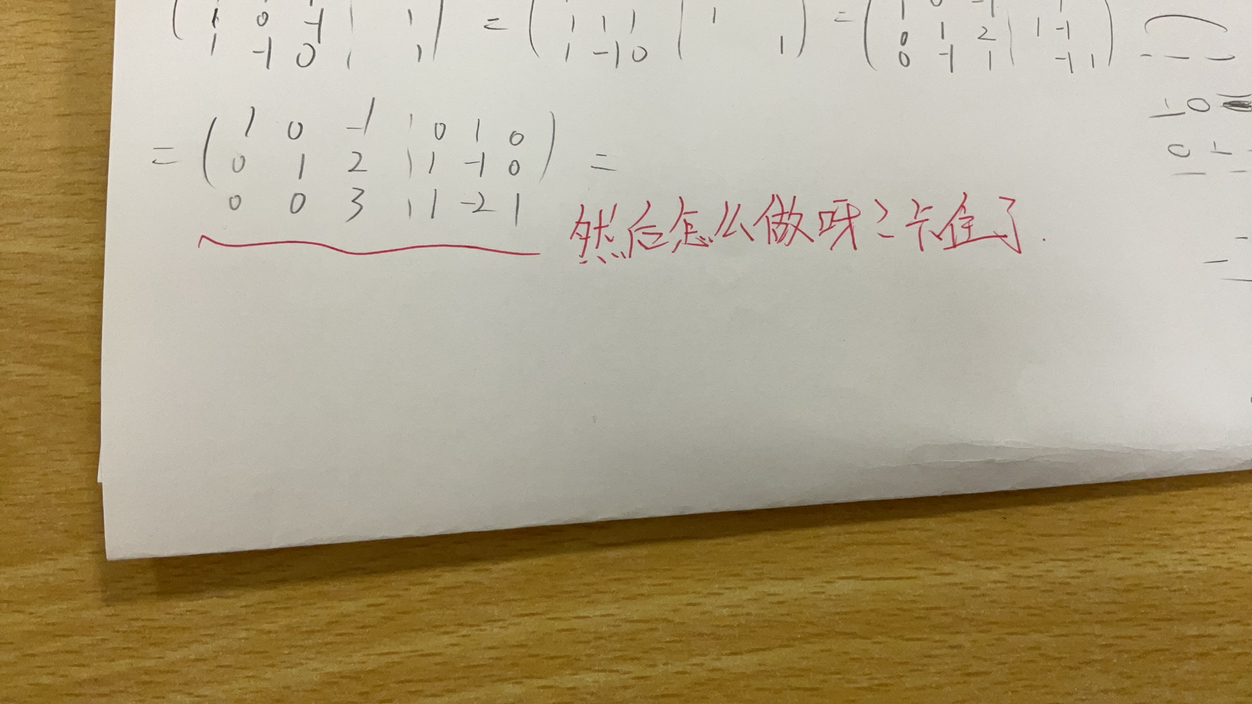 1 0 -1 | 1 = ( 1 1 1 | 1 ) = ( 0 1 2 | 1 -1 )
1 -1 0 | 1 1 -1 0 | 1 0 -1 1 | -1 1
= ( 1 0 -1 | 0 1 0 ) =
0 1 2 | 1 -1 0
0 0 3 | 1 -2 1
然后怎么做呀？卡住了.